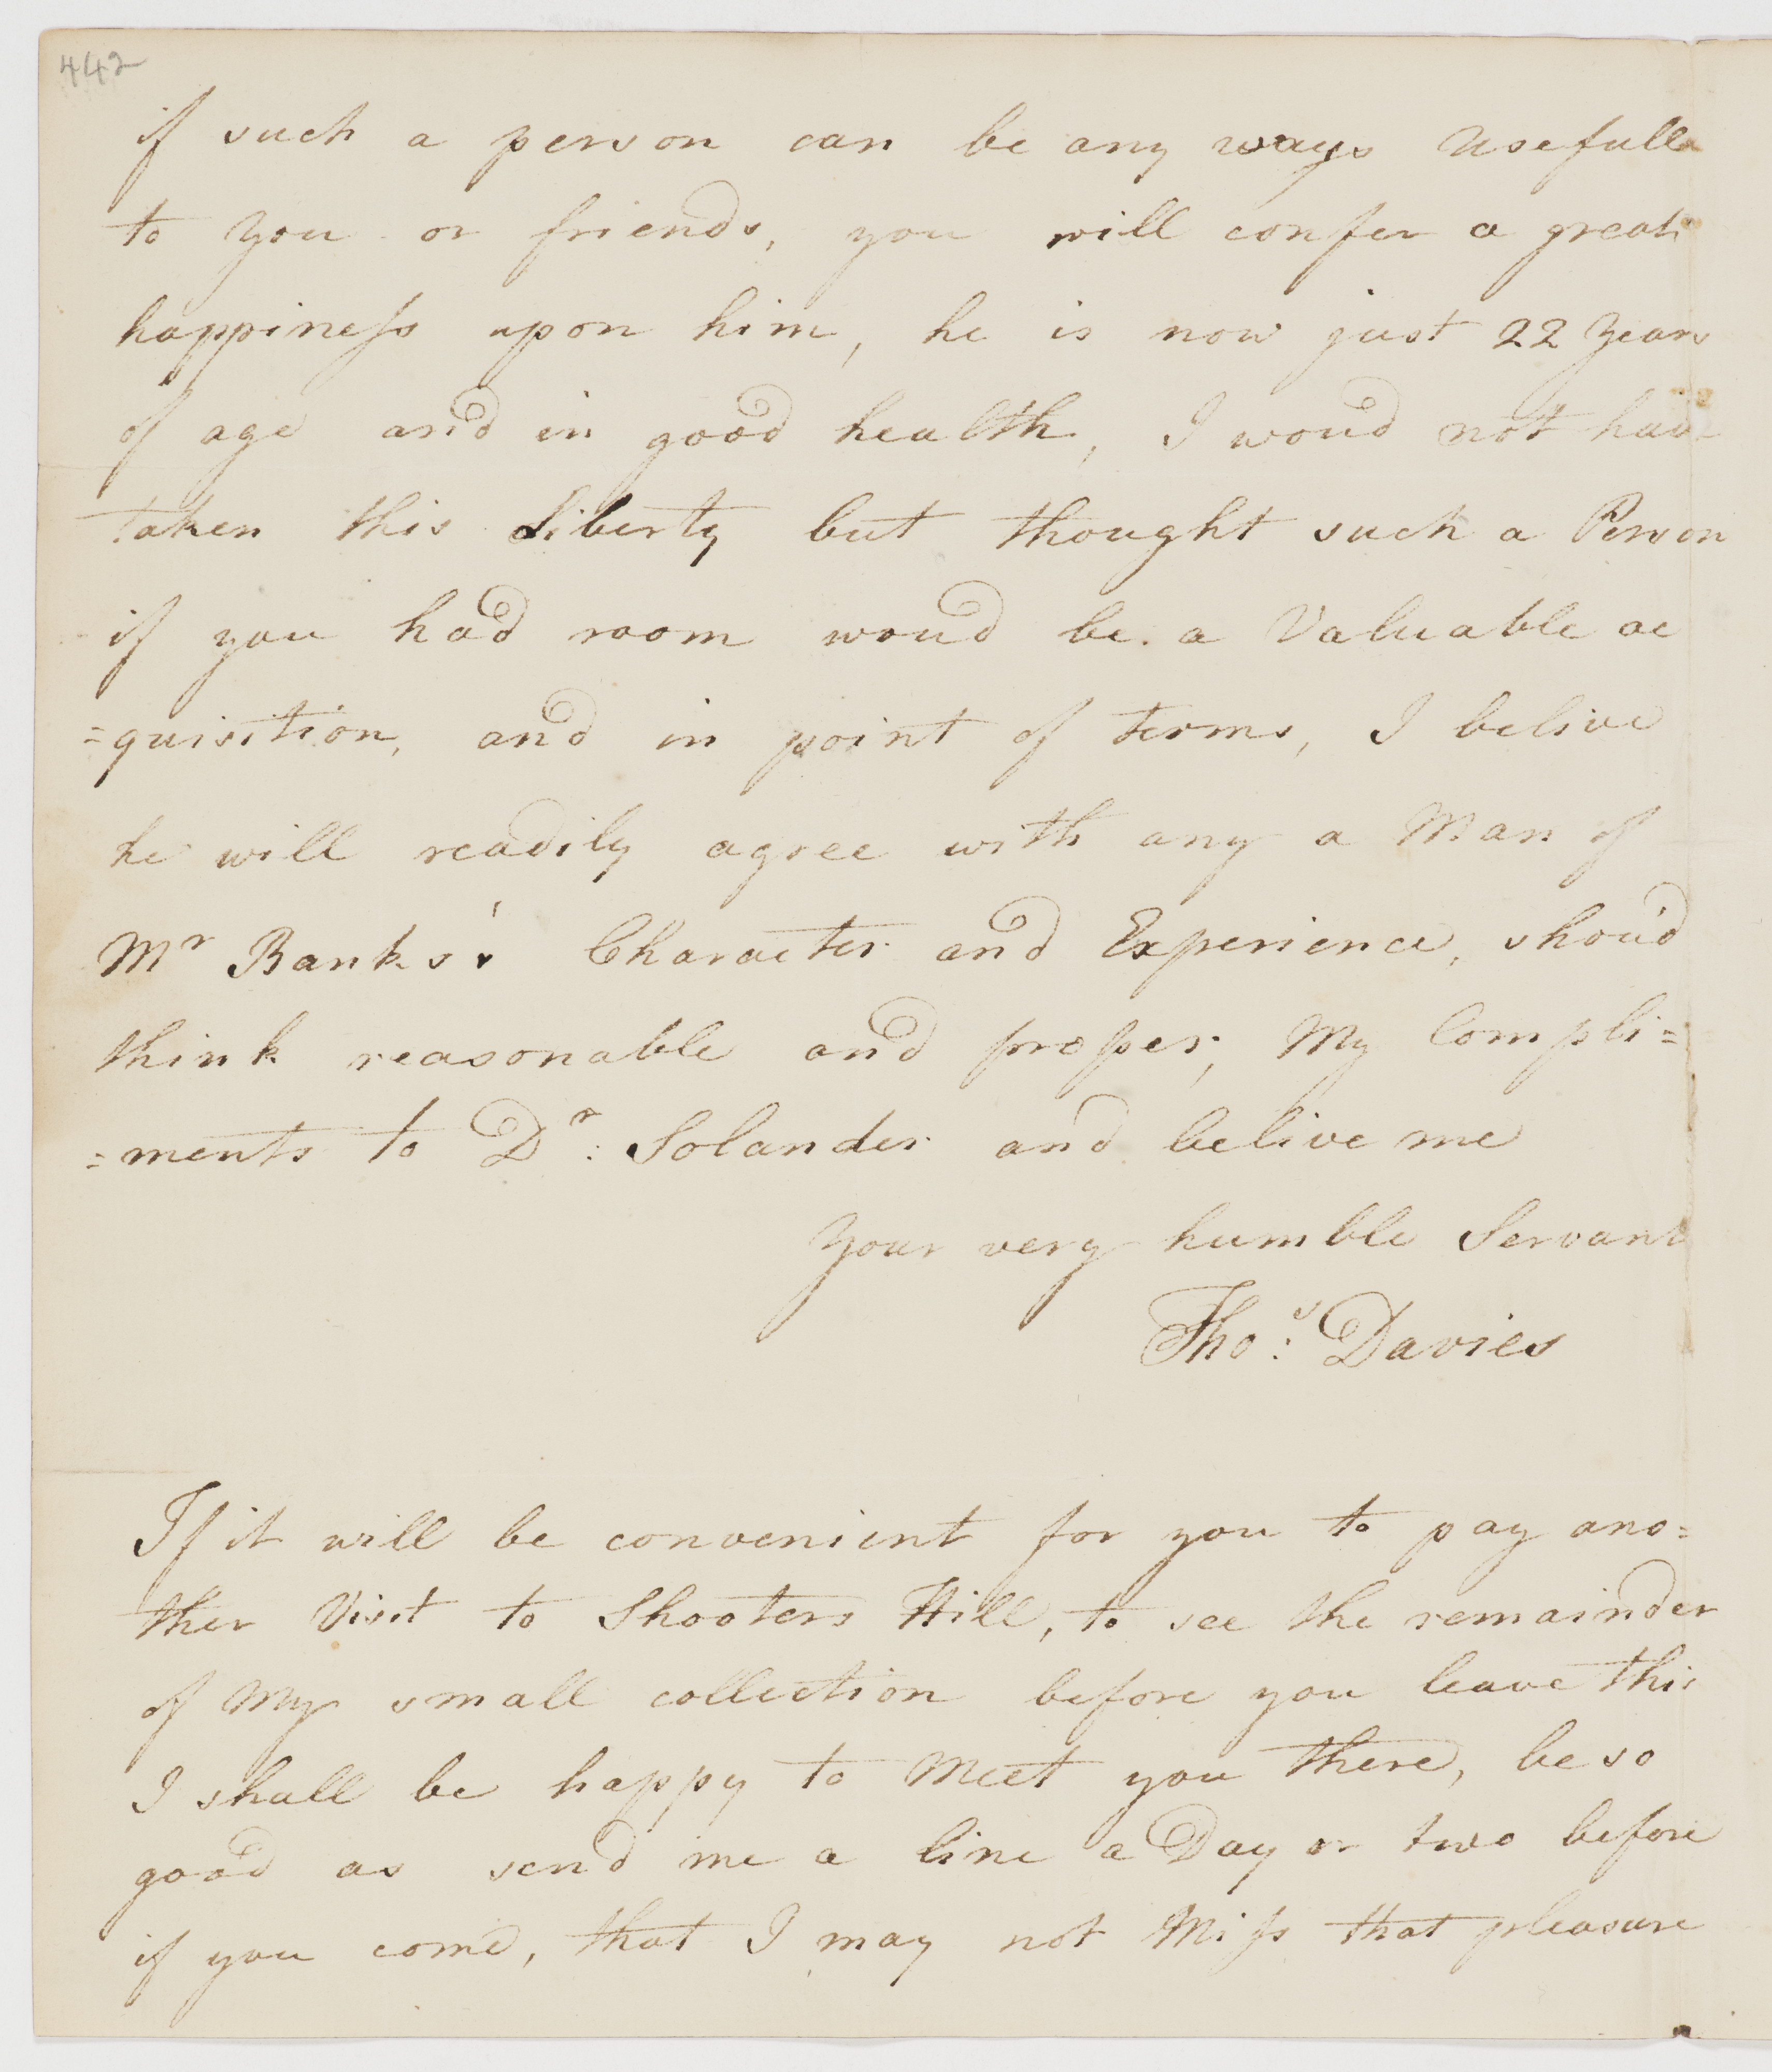 442
if such a person can be any ways Usefull
to you or friends, you will confer a great
happiness upon him, he is now just 22 Years
of age and in good health, I woud not have
taken this Liberty but thought such a Person
if you had room woud be a Valuable ac
=quisition, and in point of terms, I belive
he will readily agree with any a Man of
Mr Banks's Character and Experience, shou'd
think reasonable and proper, My Compli=
=ments to Dr: Solander and belive me
Your very humble Servant
Thos: Davies
If it will be convenient for you to pay ano=
ther Visit to Shooters Hill, to see the remainder
of My small collection before you leave this
I shall be happy to Meet you there, be so
good as send me a line a Day or two before
if you come, that I may not Miss that pleasure